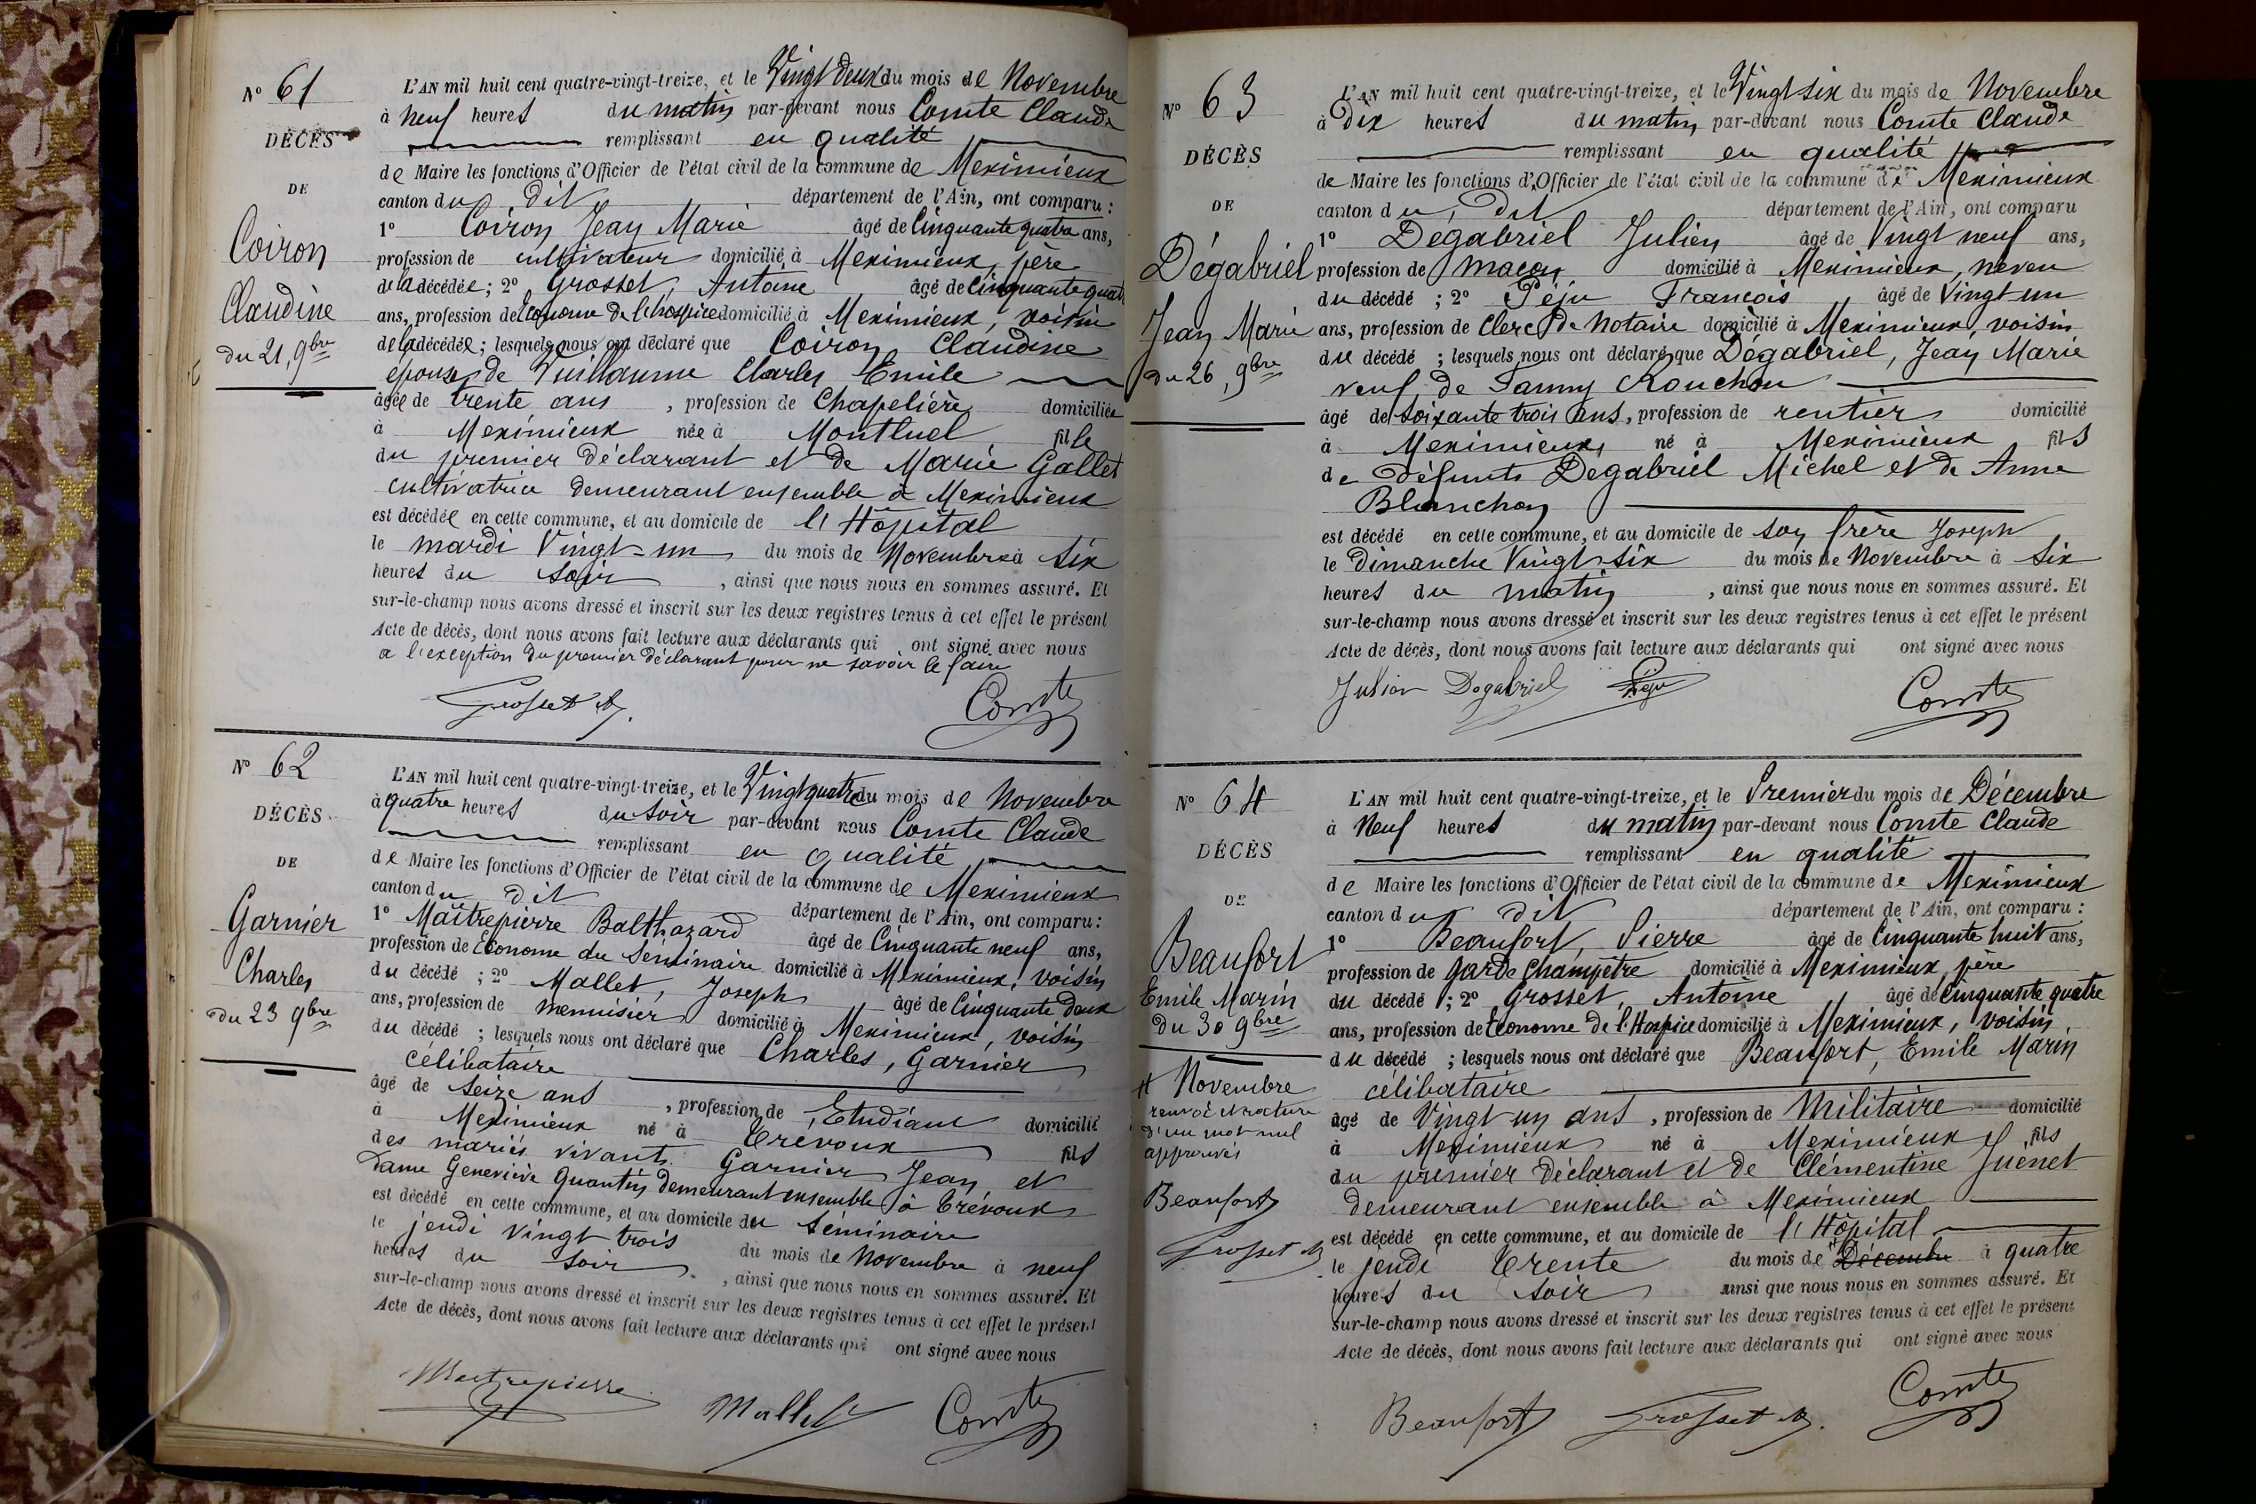 N° 61
DÉCÈS
DE
Coiron
Claudine
du 21, 9bre
L'AN mil huit cent quatre-vingt-treize, et le Vingt deux du mois de Novembre
à Neuf heures du matin par-devant nous Comte Claude
remplissant en qualité
de Maire les fonctions d'Officier de l'état civil de la commune de Meximieux
canton du dit département de l'Ain, ont comparu :
1° Coiron Jean Marie âgé de Cinquante quatre ans,
profession de cultivateur domicilié à Meximieux, père
de la décédée ; 2° Grosset, Antoine âgé de Cinquante quatre
ans, profession de Econome de l'hospice domicilié à Meximieux, voisin
de la décédée ; lesquels nous ont déclaré que Coiron Claudine
épouse de Vuillaume Charles Emile
âgée de trente ans, profession de Chapelière domiciliée
à Meximieux née à Montluel fille
du premier déclarant et de Marie Gallet
cultivatrice demeurant ensemble à Meximieux
est décédée en cette commune, et au domicile de l'Hôpital
le mardi Vingt-un du mois de Novembre à six
heures du soir, ainsi que nous nous en sommes assuré. Et
sur-le-champ nous avons dressé et inscrit sur les deux registres tenus à cet effet le présent
Acte de décès, dont nous avons fait lecture aux déclarants qui ont signé avec nous
a l'exception du premier déclarant pour ne savoir le faire
Grosset A. Comte
N° 62
DÉCÈS
DE
Garnier
Charles
du 23 9bre
L'AN mil huit cent quatre-vingt-treize, et le Vingt quatre du mois de Novembre
à quatre heures du soir par-devant nous Comte Claude
remplissant en qualité
de Maire les fonctions d'Officier de l'état civil de la commune de Meximieux
canton du dit département de l'Ain, ont comparu :
1° Maîtrepierre Balthazard âgé de Cinquante neuf ans,
profession de Econome du Séminaire domicilié à Meximieux, voisin
du décédé ; 2° Mallet, Joseph âgé de Cinquante deux
ans, profession de menuisier domicilié à Meximieux, voisin
du décédé ; lesquels nous ont déclaré que Charles, Garnier
célibataire
âgé de seize ans, profession de Etudiant domicilié
à Meximieux né à Trévoux fils
des mariés vivants Garnier Jean et
Dame Geneviève Quantin demeurant ensemble à Trévoux
est décédé en cette commune, et au domicile du Séminaire
le jeudi vingt trois du mois de Novembre à neuf
heures du soir, ainsi que nous nous en sommes assuré. Et
sur-le-champ nous avons dressé et inscrit sur les deux registres tenus à cet effet le présent
Acte de décès, dont nous avons fait lecture aux déclarants qui ont signé avec nous
Maitrepierre Mallet Comte
N° 63
DÉCÈS
DE
Dégabriel
Jean Marie
du 26, 9bre
L'AN mil huit cent quatre-vingt-treize, et le Vingt six du mois de Novembre
à Dix heures du matin par-devant nous Comte Claude
remplissant en qualité
de Maire les fonctions d'Officier de l'état civil de la commune de Meximieux
canton du dit département de l'Ain, ont comparu
1° Dégabriel Julien âgé de Vingt neuf ans,
profession de maçon domicilié à Meximieux, neveu
du décédé ; 2° Péju François âgé de Vingt un
ans, profession de Clerc de Notaire domicilié à Meximieux, voisin
du décédé ; lesquels nous ont déclaré que Dégabriel, Jean Marie
veuf de Fanny Rouchon
âgé de soixante trois ans, profession de rentier domicilié
à Meximieux, né à Meximieux fils
de défunts Dégabriel Michel et de Anne
Blanchon
est décédé en cette commune, et au domicile de son frère Joseph
le Dimanche Vingt-six du mois de Novembre à six
heures du matin, ainsi que nous nous en sommes assuré. Et
sur-le-champ nous avons dressé et inscrit sur les deux registres tenus à cet effet le présent
Acte de décès, dont nous avons fait lecture aux déclarants qui ont signé avec nous
Julien Dégabriel Péju Comte
N° 64
DÉCÈS
DE
Beaufort
Emile Marin
du 30 9bre
# Novembre
renvoi et rature
d'un mot nul
approuvés
Beaufort
Grosset A
L'AN mil huit cent quatre-vingt-treize, et le Premier du mois de Décembre
à Neuf heures du matin par-devant nous Comte Claude
remplissant en qualité
de Maire les fonctions d'Officier de l'état civil de la commune de Meximieux
canton du dit département de l'Ain, ont comparu :
1° Beaufort, Pierre âgé de Cinquante huit ans,
profession de Garde Champêtre domicilié à Meximieux, père
du décédé ; 2° Grosset, Antoine âgé de Cinquante quatre
ans, profession de Econome de l'Hospice domicilié à Meximieux, voisin
du décédé ; lesquels nous ont déclaré que Beaufort, Emile Marin
célibataire
âgé de Vingt un ans, profession de Militaire domicilié
à Meximieux né à Meximieux, fils
du premier déclarant et de Clémentine Juenet
demeurant ensemble à Meximieux
est décédé en cette commune, et au domicile de l'Hôpital
le jeudi trente du mois de # Décembre à quatre
heures du soir ainsi que nous nous en sommes assuré. Et
sur-le-champ nous avons dressé et inscrit sur les deux registres tenus à cet effet le présent
Acte de décès, dont nous avons fait lecture aux déclarants qui ont signé avec nous
Beaufort Grosset A. Comte